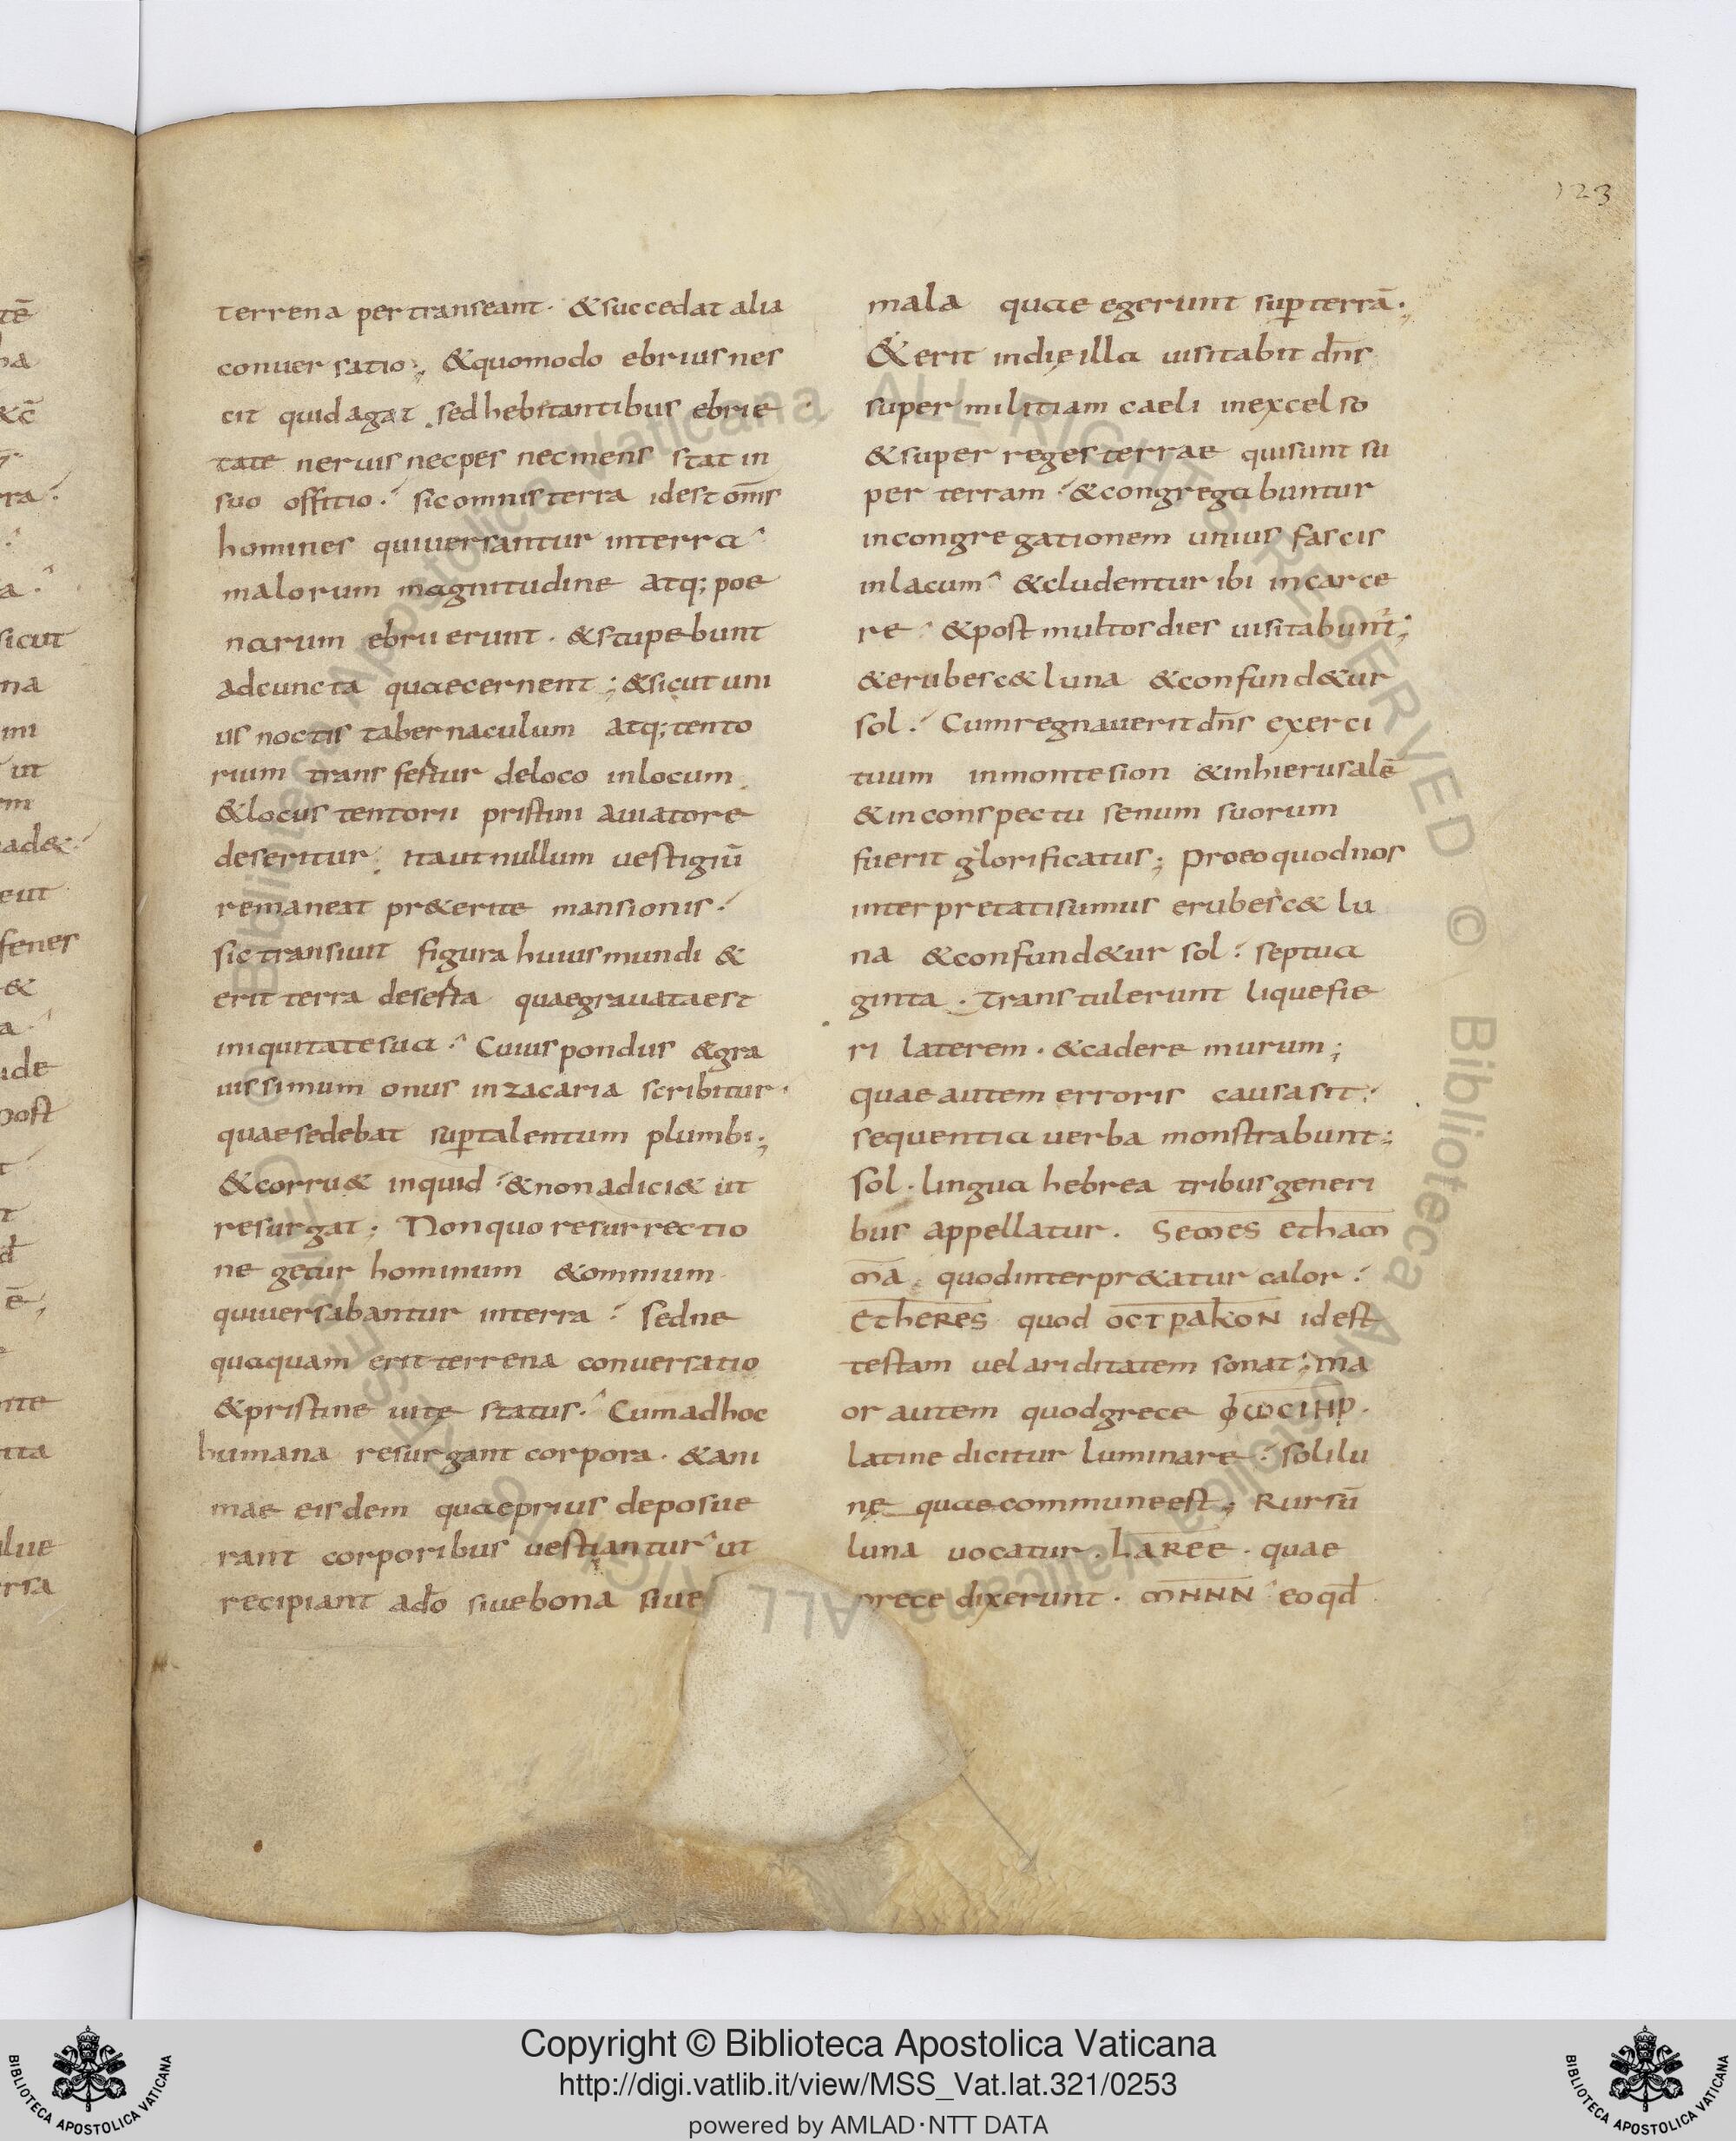 123
terrena pertranseant· &succedat alia
conuersatio; &quomodo ebrius nes
cit quid agat. sed hebitantibus ebrie
tate neruis nec pes nec mens stat in
suo offitio. sic omnis terra id est om̅s
homines qui uersantur in terra
malorum magnitudine atq; poe
narum ebrii erunt· &stupebunt
ad cuncta quae cernent; &sicut uni
us noctis tabernaculum atq; tento
rium transfertur de loco in locum.
&locus tentorii pristini a uiatore
deseritur. ita ut nullum uestigiū
remaneat pr&erite mansionis.
sic transiuit figura huius mundi &
erit terra deserta quae grauata est
iniquitate sua. Cuius pondus &gra
uissimum onus in zacaria scribitur·
quae sedebat suꝑ talentum plumbi;
&corru& inquid &non adici& ut
resurgat; Non quo resurrectio
negetur hominum &omnium
qui uersabantur in terra sed ne
quaquam erit terrena conuersatio
&pristine uite status. Cum ad hoc
humana resurgant corpora. &ani
mae eisdem quae prius deposue
rant corporibus uestiantur ut
recipiant ad d̅o siue bona siue
mala quae egerunt suꝑ terrā.
&erit in die illa uisitabit dn̅s
super militiam caeli in excelso
&super reges terrae qui sunt su
per terram &congregabuntur
in congregationem unius fascis
in lacum &cludentur ibi in carce
re &post multos dies uisitabunt;
&erubesc& luna &confund&ur
sol. Cum regnauerit dn̅s exerci
tuum in monte sion &in hierusalē
&in conspectu senum suorum
fuerit glorificatus; pro eo quod nos
interpretati sumus erubesc& lu
na &confund&ur sol septua
ginta. transtulerunt liquefie
ri laterem· &cadere murum;
quae autem erroris causa sit.
sequentia uerba monstrabunt;
sol· lingua hebrea tribus generi
bus appellatur. Semes etham
ma. quod interpr&atur calor.
etheres quod OCTPAKON id est
testam uel ariditatem sonat; ma
or autem quod grece ΦωCTHP.
latine dicitur luminare. soli lu
nę quae commune est; Rursū
luna uocatur. LAREE· quae
grece dixerunt· MHNN eo qd̅
Copyright © Biblioteca Apostolica Vaticana
http://digi.vatlib.it/view/MSS_Vat.lat.321/0253
powered by AMLAD·NTT DATA